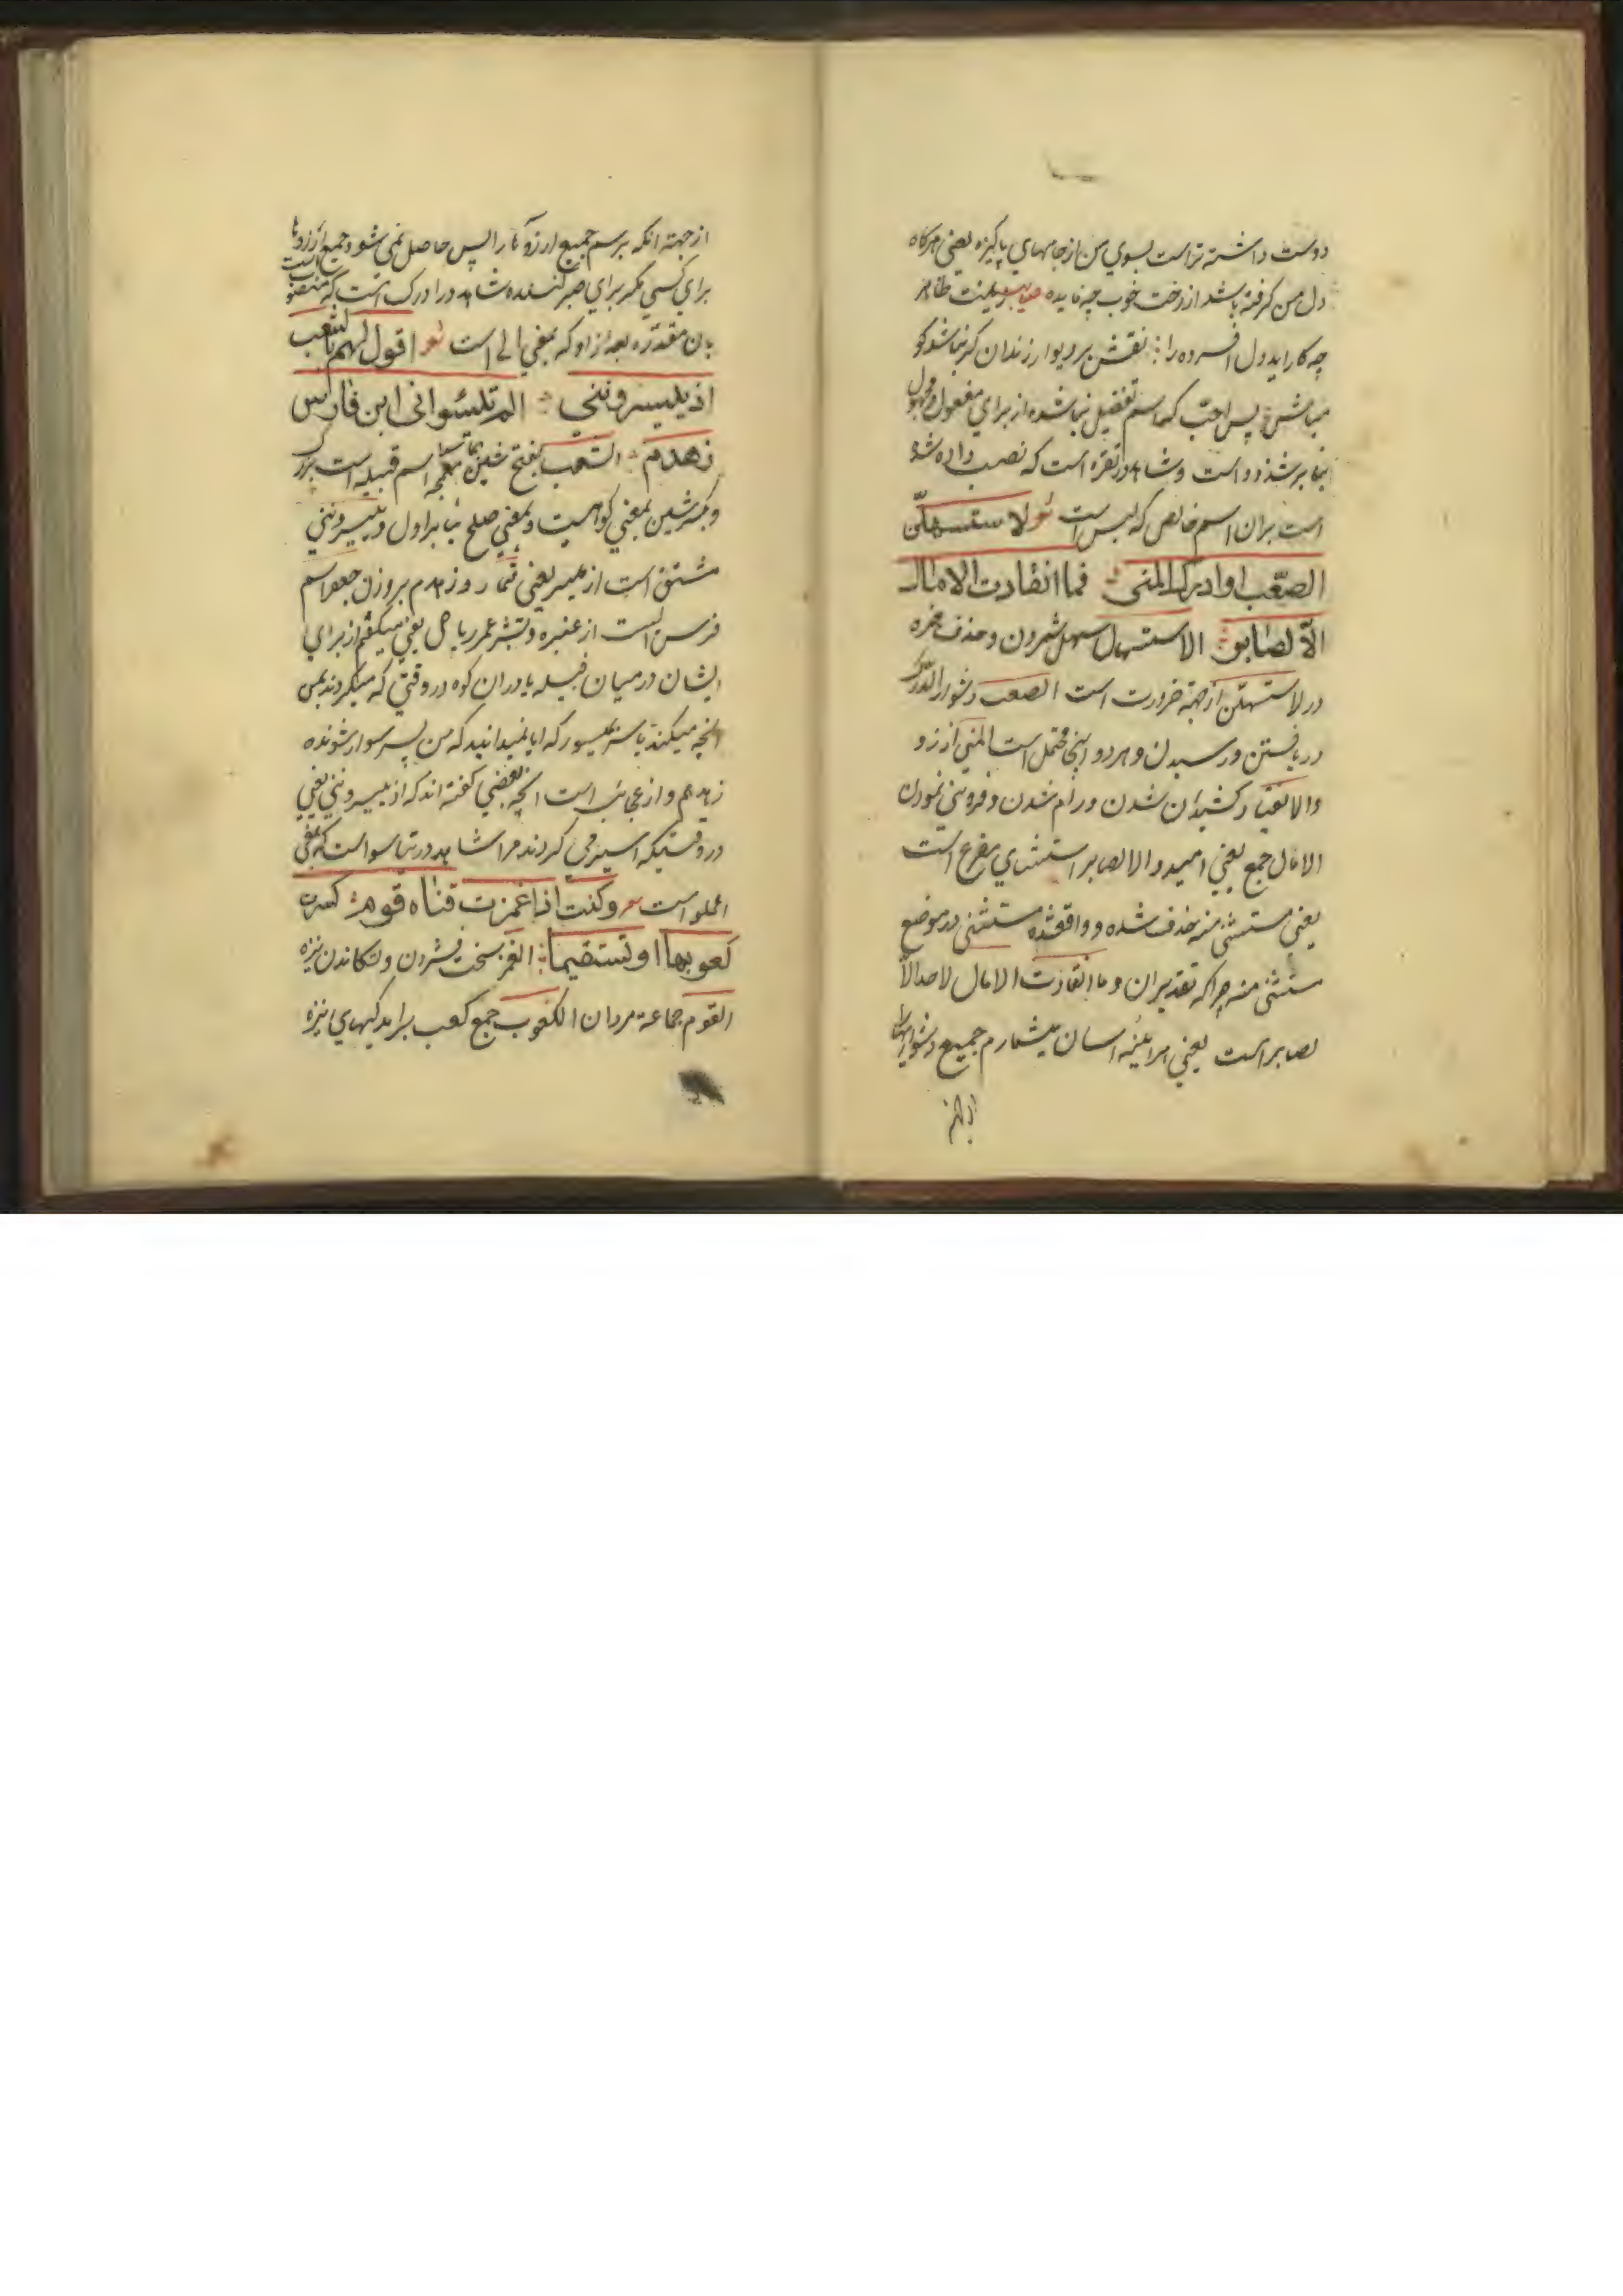 دوست داشته تر است بسوي من از جامهاي پاكيزه يعني هركاه
دل من كرفته باشد از رخت خوب چه فايده زينت ظاهر
چه كار ايد دل افسرده را نقش بر ديوار زندان كر نباشد كو
مباش پس احبّ كه اسم تفضيل بنا شده از براي مفعول مجهول
بنا بر شذوذ است و شاهد در تقره است كه نصب داده شد
است بر ان اسم خالص كه لبس است شعر لاستسهلنّ
الصّعب او ادرك المنى فما انقادت الامال
الّا لصابر الاستسهال سهل شمردن و حذف همزه
در لاستسهلن از جهة ضرورت است الصعب دشوار الدرك
دريافتن و رسيدن و هر دو اينجا محتمل است المني ارزو
والانقياد كشيدان شدن و رام شدن و فروتني نمودن
الامال جمع يعني اميد و الا لصابر استثناي مفرغ است
يعني مستثنى منه حذف شده و واقع شده مستثنى در موضع
مستثنى منه چراكه تقدير ان وما انقادت الامال لاحد الّا
لصابر است يعني هراينه اسان ميشمارم جميع دشواريها
از جهة انكه برسم جميع ارزوها را پس حاصل نمي شود جميع ارزوها
براي كسي مكر براي صبر كننده شاهد در ادرك است كه منصوب است
بان مقدّره بعد از او كه بمعني الى است شعر اقول لهم بالشعب
اذ ييسرونني الم تيئسوا اني ابن فارس
زهدم الشعب بفتح شين معجمه اسم قبيله است بزرك
و بكسر شين بمعني كوهيست و بمعني صلح بنا بر اول و ييسرونني
مشتق است از ميسر يعني قمار و زهدم بر وزن جعفر اسم
فرس است از عنبره و بشر عمر رياحي يعني ميكفتم از براي
ايشان در ميان قبيله يا در ان كوه در وقتي كه ميكردند بمن
انچه ميكنند با ميسور كه ايا نميدانيد كه من پسر سوار شونده
زهدم و از عجائب است انچه بعضي كفته اند كه اذ ييسرونني يعني
در وقتيكه اسير مي كردند مرا شاهد در تيأسوا است كه بمعني
اعلموا است شعر وكنت اذا غمزت قناه قوم كسرت
كعوبها او تستقيما الغمز سخت فشردن و تكاندن نيزه
القوم جماعة مردان الكعوب جمع كعب برامدكيهاي نيزه